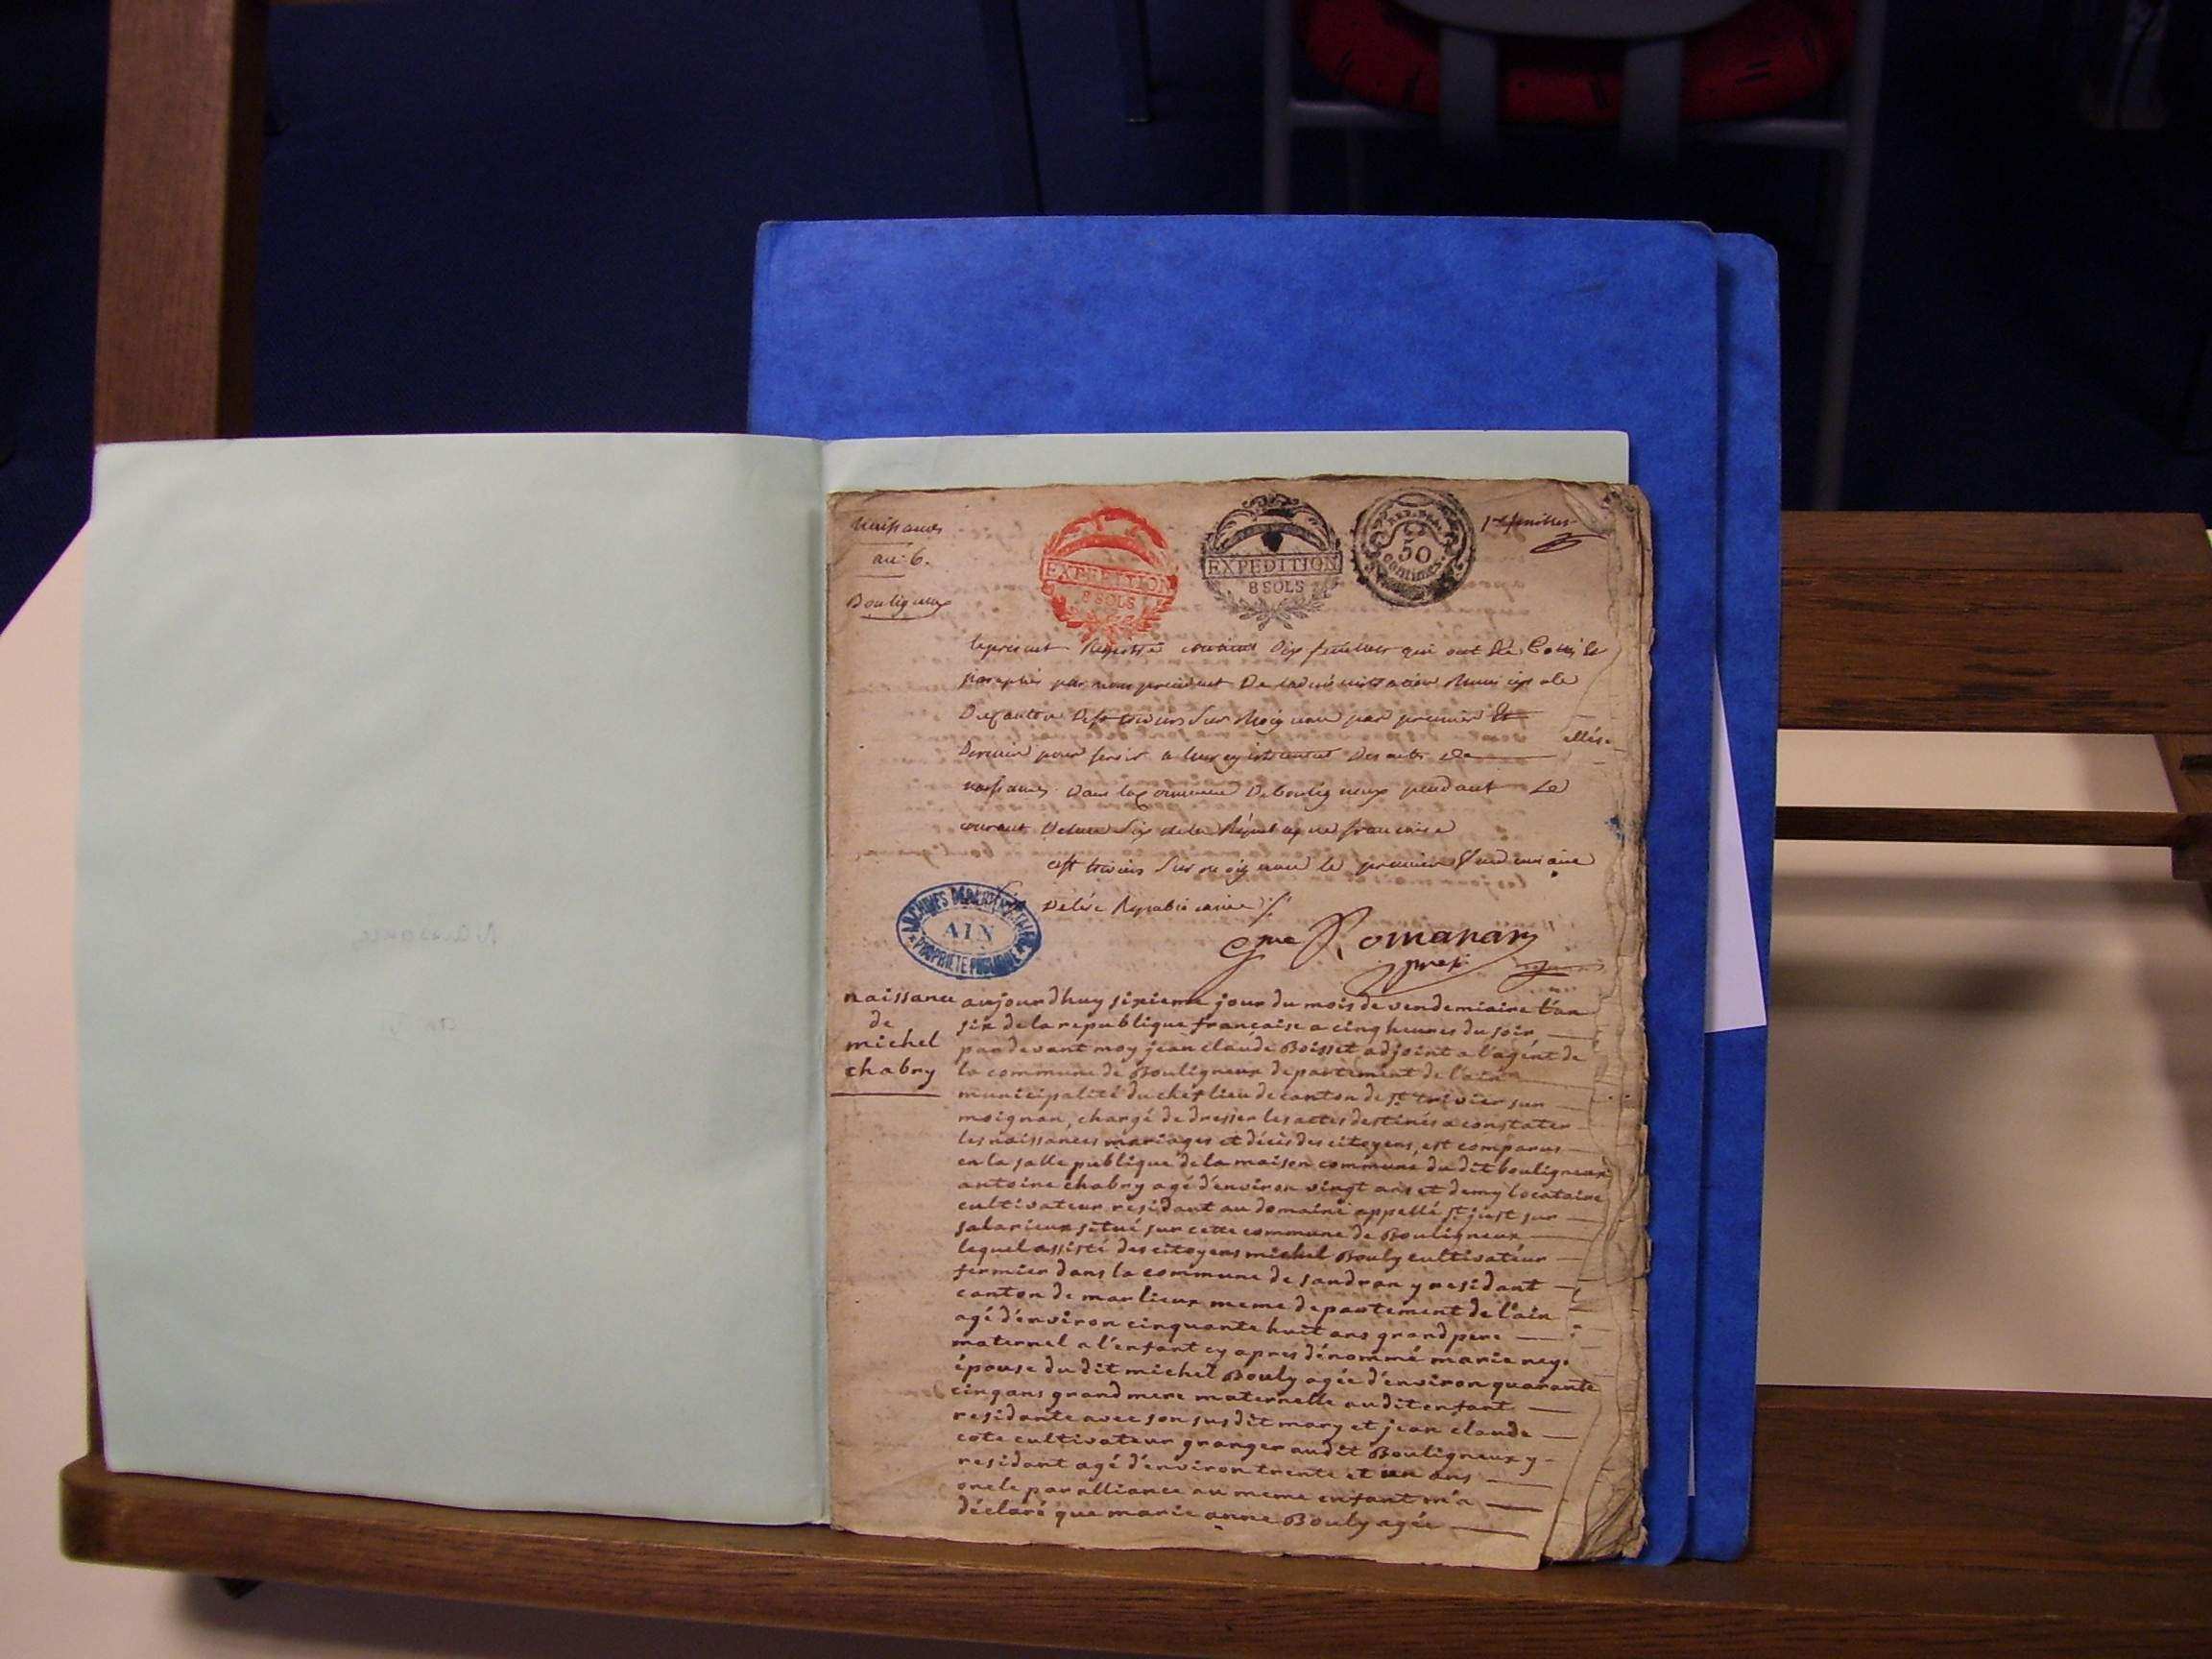 naissances
an 6.
Bouligneux
EXPEDITION
8 SOLS
EXPEDITION
8 SOLS
REP. FRA.
50
centimes
1er feuillet
le present Registre contenant dix feuillets qui ont été Cottés et
paraphés par nous president De ladministration Municipale
Du Canton De st trivier Sur Moignan par premier Et
Dernier pour servir a lenregistrement Des actes de
naissances Dans la Commune De bouligneux pendant Le
courant De lan Six de la Républiq ue francaise
a st trivier Sur moignan le premier Vendemiaire
De lère Republicaine
ARCHIVES DEPARTEMENTALES
AIN
PROPRIETE PUBLIQUE
Romanan
presi
naissance
de
michel
chabry
aujourdhuy sixieme jour du mois de vendemiaire l'an
six de la republique française a cinq heures du soir
pardevant moy jean claude Boisset adjoint a l'agent de
la commune de Bouligneux departement de l'ain
municipalité du chef lieu de canton de st trivier sur
moignan, chargé de dresser les actes destinés a constater
les naissances mariages et décès des citoyens, est comparus
en la salle publique de la maison commune du dit bouligneux
antoine chabry agé d'environ vingt ans et demy locataire
cultivateur residant au domaine appellé st just sur
salarieux situé sur cette commune de Bouligneux
lequel assisté des citoyens michel Bouly cultivateur
fermier dans la commune de sandran y residant
canton de marlieux meme departement de l'ain
agé d'environ cinquante huit ans grand pere
maternel a l'enfant cy apres dénommé marie rey
épouse du dit michel Bouly agée d'environ quarante
cinq ans grand mere maternelle au dit enfant
residante avec son susdit mary et jean claude
cote cultivateur granger audit Bouligneux y
residant agé d'environ trente et un ans
oncle par alliance au meme enfant m'a
déclaré que marie anne Bouly agée